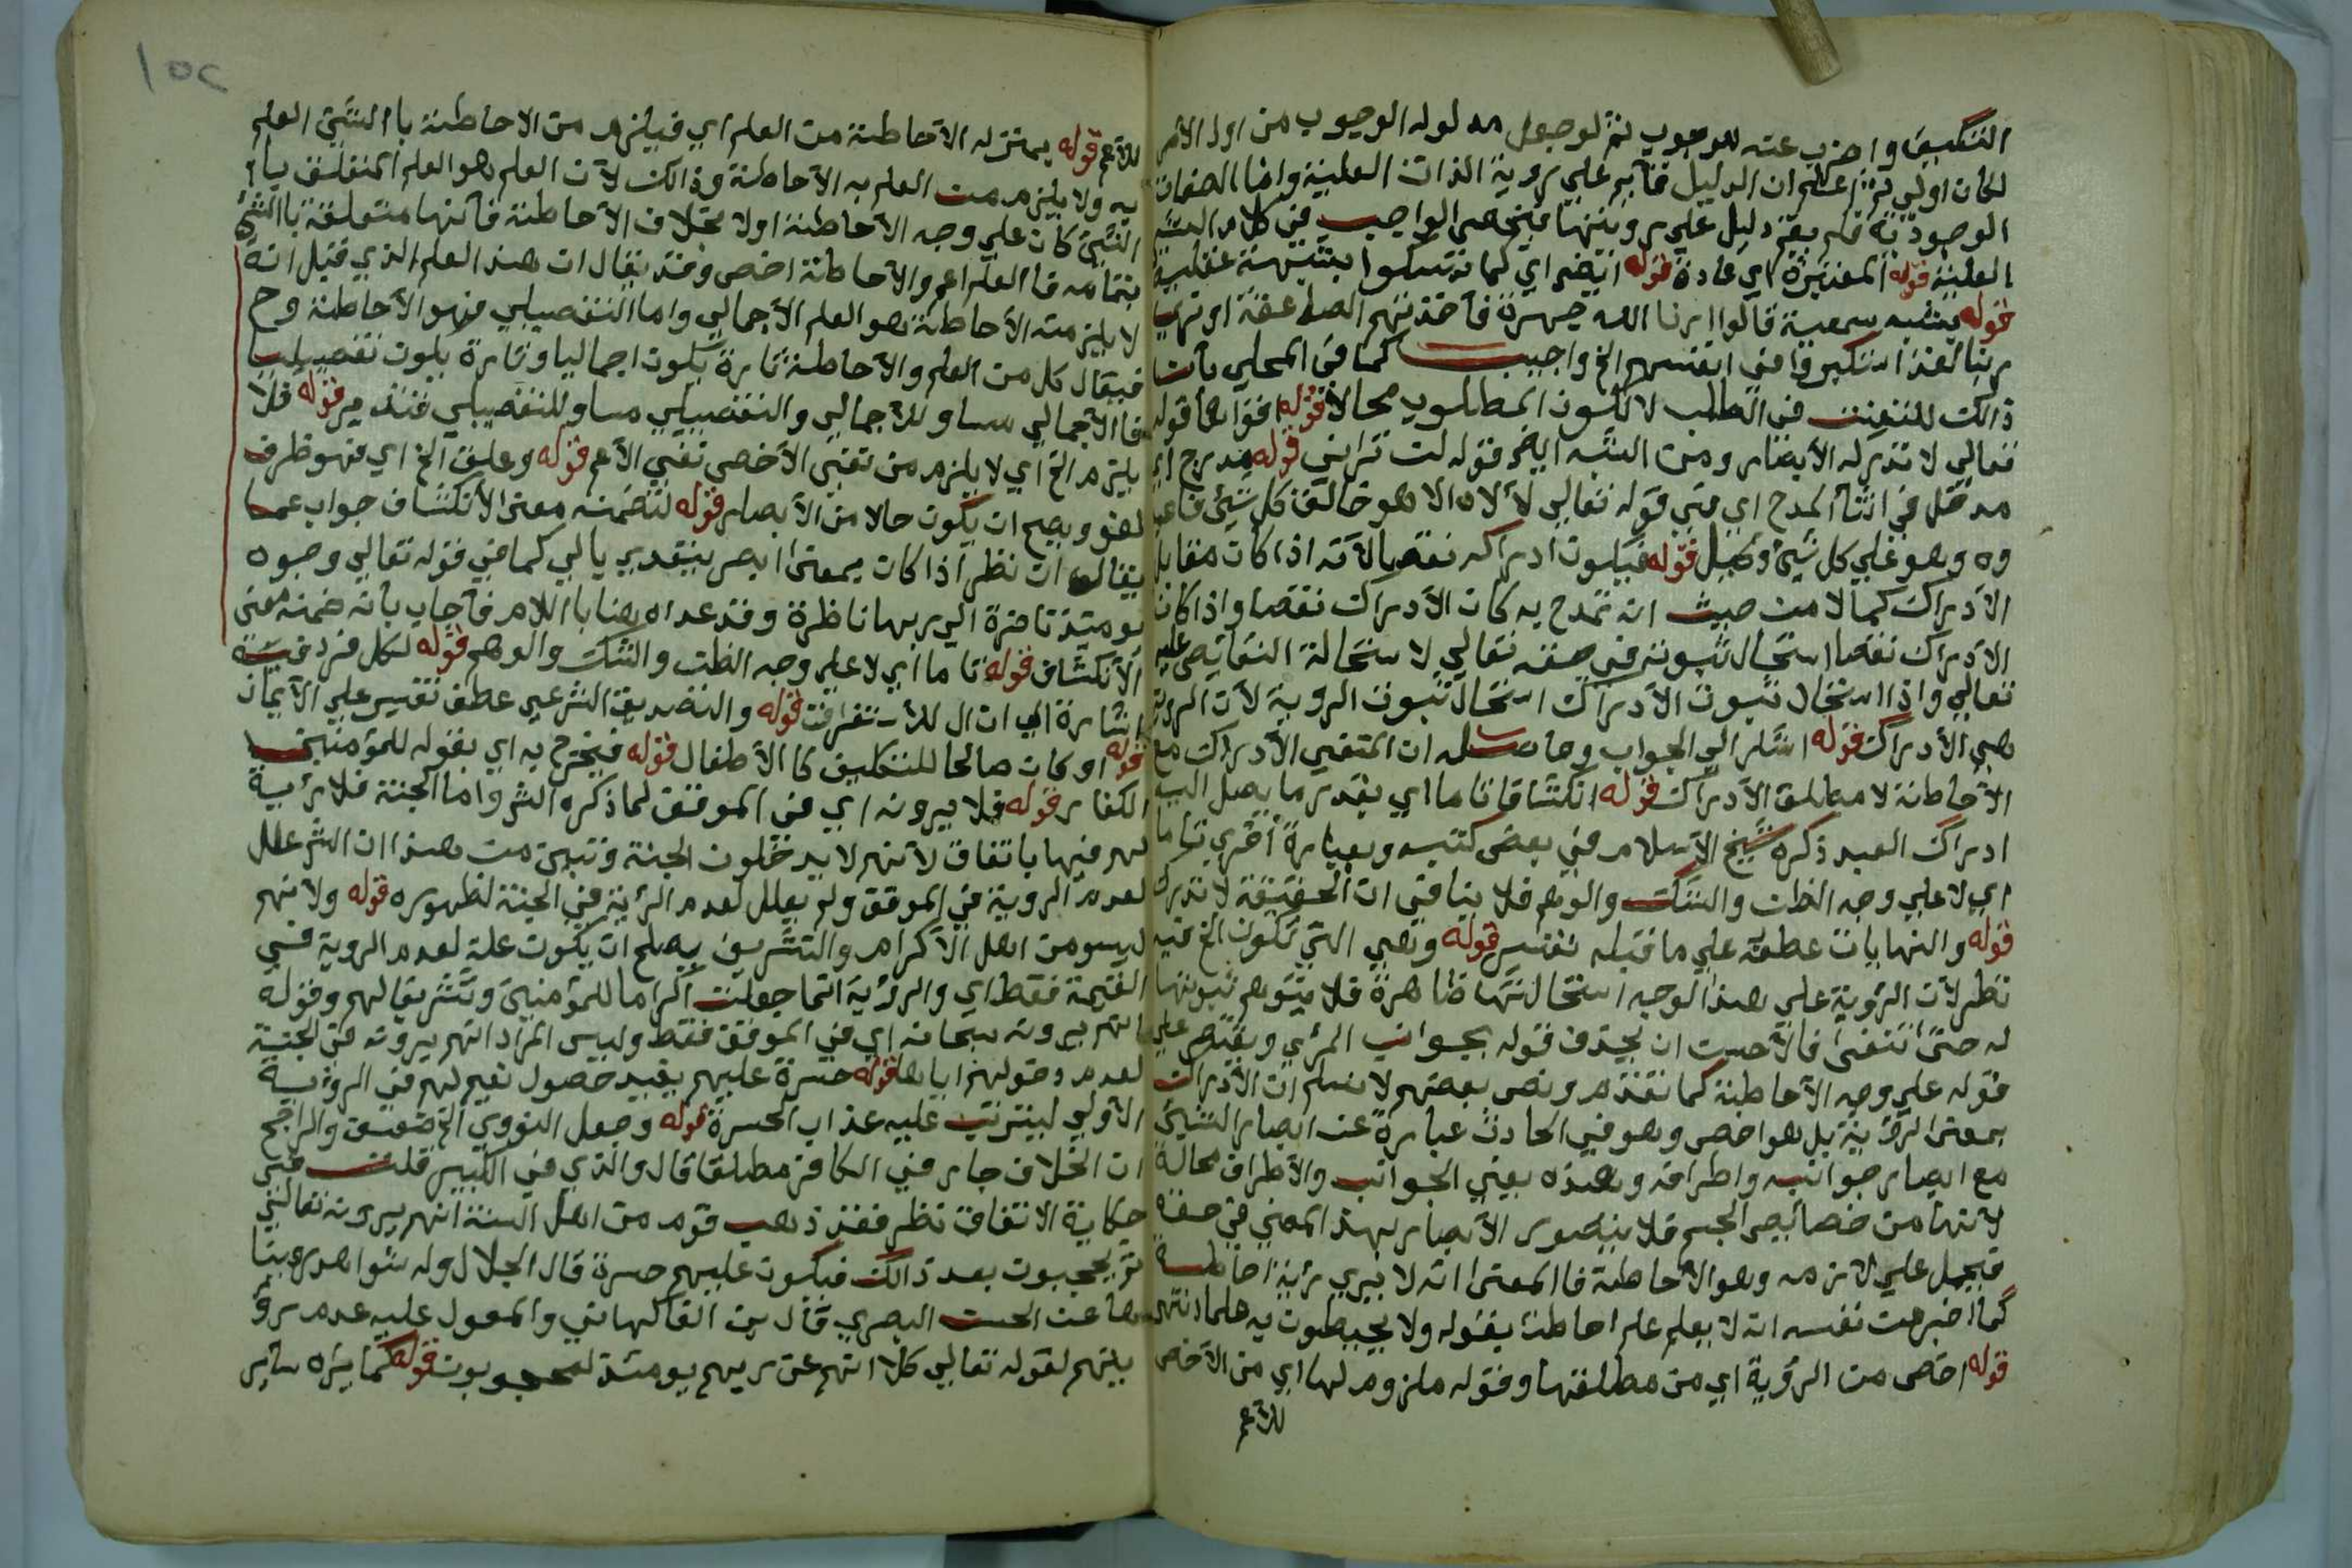 التكييف واضرب عنه للوجوب ثم لو جعل مدلوله الوجوب من اول الامر
لكان اولي ثم اعلم ان الدليل قائم علي روية الذات العلية واما الصفات
الوجودية فلم يقم دليل علي رويتها فيخص الواجب في كلام الشر
العلية قوله المعتزلة اي عادة قوله ايضا اي كما تمسكوا بشبهة عقلية
قوله بشبه سمعية قالوا ارنا الله جهرة فاخذتهم الصاعقة او نري
ربنا لقد استكبروا في انفسهم الخ واجيب كما في المحلي بان
ذالك للتعنت في الطلب لا لكون المطلوب محالا قوله اقواها قوله
تعالي لا تدركه الابصار ومن الشبه ايضا قوله لن تراني قوله مدرج اي
مدخل في اثنا المدح اي في قوله تعالي لا اله الا هو خالق كل شيئ فاعبد
وه وهو علي كل شيئ وكيل قوله فيكون ادراكه نقصا لانه اذا كان مقابل
الادراك كمالا من حيث انه تمدح به كان الادراك نقصا واذا كان
الادراك نقصا استحال ثبوته في حقه تعالي لاستحالة النقائص عليه
تعالي واذا استحال ثبوت الادراك استحال ثبوت الروية لان الروية
هي الادراك قوله اشار الي الجواب وحاصله ان المنفي الادراك مع
الاحاطة لا مطلق الادراك قوله انكشافا تاما اي بقدر ما يصل اليه
ادراك العبد ذكره شيخ الاسلام في بعض كتبه وبعبارة اخري تاما
اي لا علي وجه الظن والشك والوهم فلا ينافي ان الحقيقة لا تدرك
قوله والنهايات عطفه علي ما قبله تفسير قوله وهي التي تكون الخ فيه
نظر لان الروية علي هذا الوجه استحالتها ظاهرة فلا يتوهم ثبوتها
له حتي تنفي فالاحسن ان يحذف قوله بجوانب المرئي ويقتصر علي
قوله علي وجه الاحاطة كما تقدم ونص بعضهم لا نسلم ان الادراك
بمعني الروية بل هو اخص وهو في الحادث عبارة عن ابصار الشيئ
مع ابصار جوانبه واطرافه وهذه يعني الجوانب والاطراف محالة
لانها من خصائص الجسم فلا يتصور الابصار بهذا المعني في حقه
فيحمل علي لازمه وهو الاحاطة فالمعني انه لا يري رئية احاطة
كما اخبر عن نفسه انه لا يعلم علم احاطة بقوله ولا يحيطون به علما
قوله اخص من الرؤية اي من مطلقها وقوله ملزوم لها اي من الاخص
للاعم
١٥٢
للاعم قوله بمنزله الاحاطة من العلم اي فيلزم من الاحاطة بالشيئ العلم
به ولا يلزم من العلم به الاحاطة وذالك لان العلم هو العلم المتعلق با
الشيئ كان علي وجه الاحاطة اولا بخلاف الاحاطة فانها متعلقة بالشيئ
بتمامه فالعلم اعم والاحاطة اخص وقد يقال ان هذا العلم الذي قيل انه
لا يلزمه الاحاطة هو العلم الاجمالي واما التفصيلي فهو الاحاطة وح
فيقال كل من العلم والاحاطة تارة يكون اجماليا وتارة يكون تفصيليا
فالاجمالي مساو للاجمالي والتفصيلي مساو للتفصيلي فتدبر قوله فلا
يلزم الخ اي لا يلزم من نفي الاخص نفي الاعم قوله وعليه الخ اي فهو ظرف
لغو ويصح ان يكون حالا من الابصار قوله لتضمنه معني الانكشاف جواب عما
يقال ان نظر اذا كان بمعني ابصر يتعدي بالي كما في قوله تعالي وجوه
يومئذ ناضرة الي ربها ناظرة وقد عداه هنا باللام فاجاب بانه ضمنه معني
الانكشاف قوله تاما اي لا علي وجه الظن والشك والوهم قوله لكل فرد فيه
اشارة الي ان ال للاستغراق قوله والتصديق الشرعي عطف تفسير علي الايمان
قوله او كان صالحا للتكليف كالاطفال قوله فيخرج به اي بقوله للمؤمنين
الكفار قوله فلا يرونه اي في الموقف لما ذكره الشر واما الجنة فلا رئية
لهم فيها باتفاق لانهم لا يدخلون الجنة وتبين من هذا ان الشر علل
لعدم الروية في الموقف ولم يعلل لعدم الرئية في الجنة لظهوره قوله ولانهم
ليسو من اهل الاكرام والتشريف يصلح ان يكون علة لعدم الروية في
القيمة فقط اي والرؤية انما جعلت اكراما للمؤمنين وتشريفا لهم وقوله
انهم يرونه سبحانه اي في الموقف فقط وليس المراد انهم يرونه في الجنة
لعدم دخولهم اياها قوله حسرة عليهم بقيد حصول نعيم لهم في الرؤية
الاولي ليترتب عليه عذاب الحسرة قوله وجعل النووي الخ ضعيف والراجح
ان الخلاف جار في الكافر مطلقا قال والذي في الكبير قلت في
حكاية الاتفاق نظر فقد ذهب قوم من اهل السنة انهم يرونه تعالي
ثم يحجبون بعد ذالك فيكون عليهم حسرة قال الجلال وله شواهد رويناها
عن الحسن البصري قال بن الفاكهاني والمعول عليه عدم رؤ
يتهم لقوله تعالي كلا انهم عن ربهم يومئذ لمحجوبون قوله كما يئره سائر